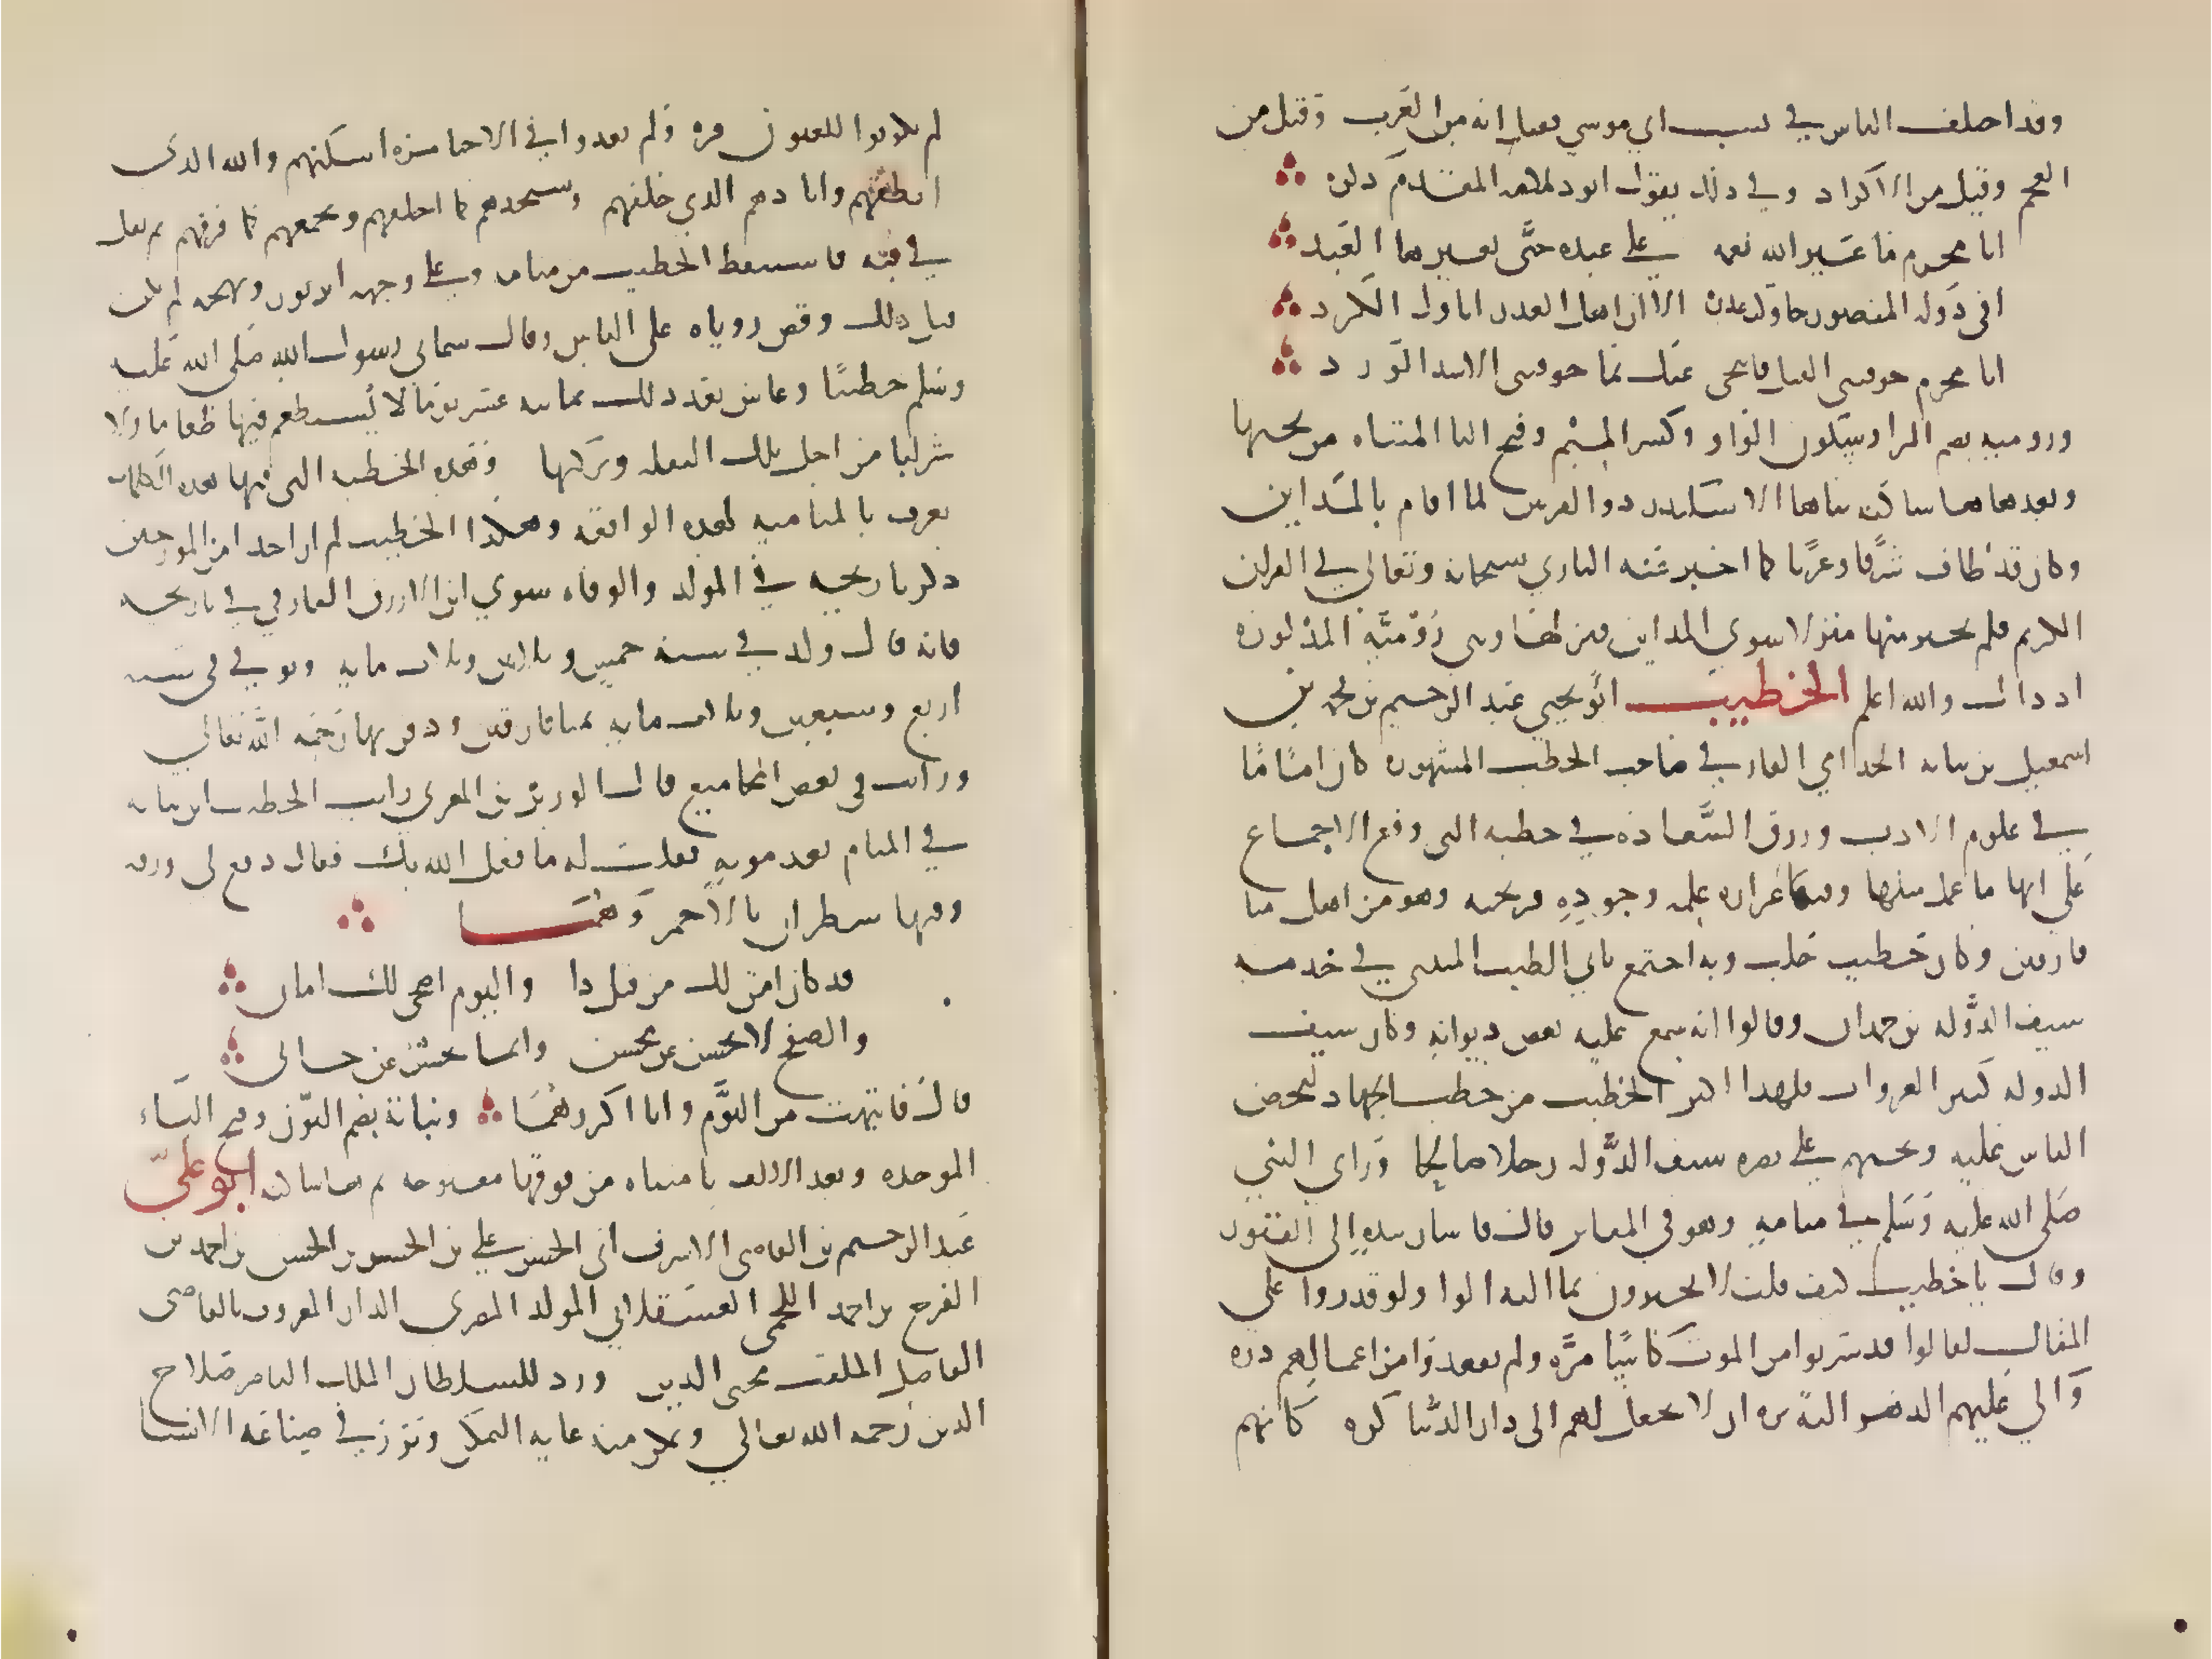 وقد اختلف الناس في نسب ابي موسى فقيل انه من العرب وقيل من
العجم وقيل من الاكراد وفي ذلك يقول ابو دلامه المقدم ذكره
ابا مجرم ما غير الله نعمه على عبده حتى يغيرها العبد
افي دولة المنصور حاولت غدره الا ان اهل الغدر اباوك الكرد
ابا مجرم خوفتني القتل فانتحى عليك بما خوفتني الاسد الورد
ورومية بضم الرا وسكون الواو وكسر الميم وفتح اليا المثناه من تحتها
وبعدها هاء ساكنه بناها الاسكندر ذو القرنين لما اقام بالمداين
وكان قد طاف شرقا وغربا كما اخبر عنه الباري سبحانه وتعالى في القران
الكريم فلم يختر منها منزلا سوى المداين فنزلها وبنى رومية المذكورة
اذ ذاك والله اعلم الخطيب ابو يحيى عبد الرحيم بن محمد بن
اسمعيل بن نباته الحذاقي الفارقي صاحب الخطب المشهورة كان اماما
في علوم الادب ورزق السعادة في خطبه التي وقع الاجماع
على انها ما عمل مثلها وفيها غزارة علمه وجودة قريحته وهو من اهل ميا
فارقين وكان خطيب حلب وبها اجتمع بابي الطيب المتنبي في خدمة
سيف الدولة بن حمدان وقالوا انه سمع عليه بعض ديوانه وكان سيف
الدولة كثير الغزوات فلهذا اكثر الخطيب من خطب الجهاد ليحض
الناس عليه ويحثهم على نصرة سيف الدولة رجلا صالحا وراى النبي
صلى الله عليه وسلم في منامه وهو في المقابر قال فاشار بيده الى القبور
وقال يا خطيب كيف قلت لا يخبرون بما اليه الوا ولو قدروا على
المقال لقالوا قد شربوا من الموت كاسا مرة ولم يفقدوا من اعمالهم ذرة
والى عليهم الدهر الية برة ان لا يجعل لهم الى دار الدنيا كرة كانهم
لم يكونوا للعيون قرة ولم يعدوا في الاحيا مرة اسكتهم والله الذي
انطقهم وابادهم الذي خلقهم وسيجدهم كما اخلقهم ويجمعهم كما فرقهم ثم تفل
في فيه فاستيقظ الخطيب من منامه وعلى وجهه اثر نور وبهجة لم يكن
قبل ذلك وقص روياه على الناس وقال سماني رسول الله صلى الله عليه
وسلم خطيبا وعاش بعد ذلك ثمانية عشر يوما لا يستطعم فيها طعاما ولا
شرابا من اجل تلك التفلة وبركتها وهذه الخطبه التي فيها هذه الكلمات
تعرف بالمنامية لهذه الواقعه وهذا الخطيب لم ار احدا من المورخين
ذكر تاريخه في المولد والوفاه سوى ابن الازرق الفارقي في تاريخه
فانه قال ولد في سنة خمس وثلاثين وثلاث مايه وتوفي في سنة
اربع وسبعين وثلاث مايه بميافارقين ودفن بها رحمه الله تعالى
ورايت في بعض المجاميع قال الوزير بن المغربي رايت الخطيب ابن نباته
في المنام بعد موته فقلت له ما فعل الله بك فقال دفع لي ورقة
وفيها سطران بالاحمر وهما
قد كان امن لك من قبل ذا واليوم اضحى لك امان
والصفح لا يحسن عن محسن وانما يحسن عن جاني
قال فانتبهت من النوم وانا اكررهما ونباتة بضم النون وفتح الباء
الموحده وبعد الالف تا مثناه من فوقها مفتوحه ثم هاء ساكنه ابو علي
عبد الرحيم بن القاضي الاشرف ابي الحسن علي بن الحسن بن الحسن بن احمد بن
الفرج بن احمد اللخمي العسقلاني المولد المصري الدار المعروف بالقاضي
الفاضل الملقب محيى الدين وزر للسلطان الملك الناصر صلاح
الدين رحمه الله تعالى وتمكن منه غاية التمكن وبرز في صناعة الانشا